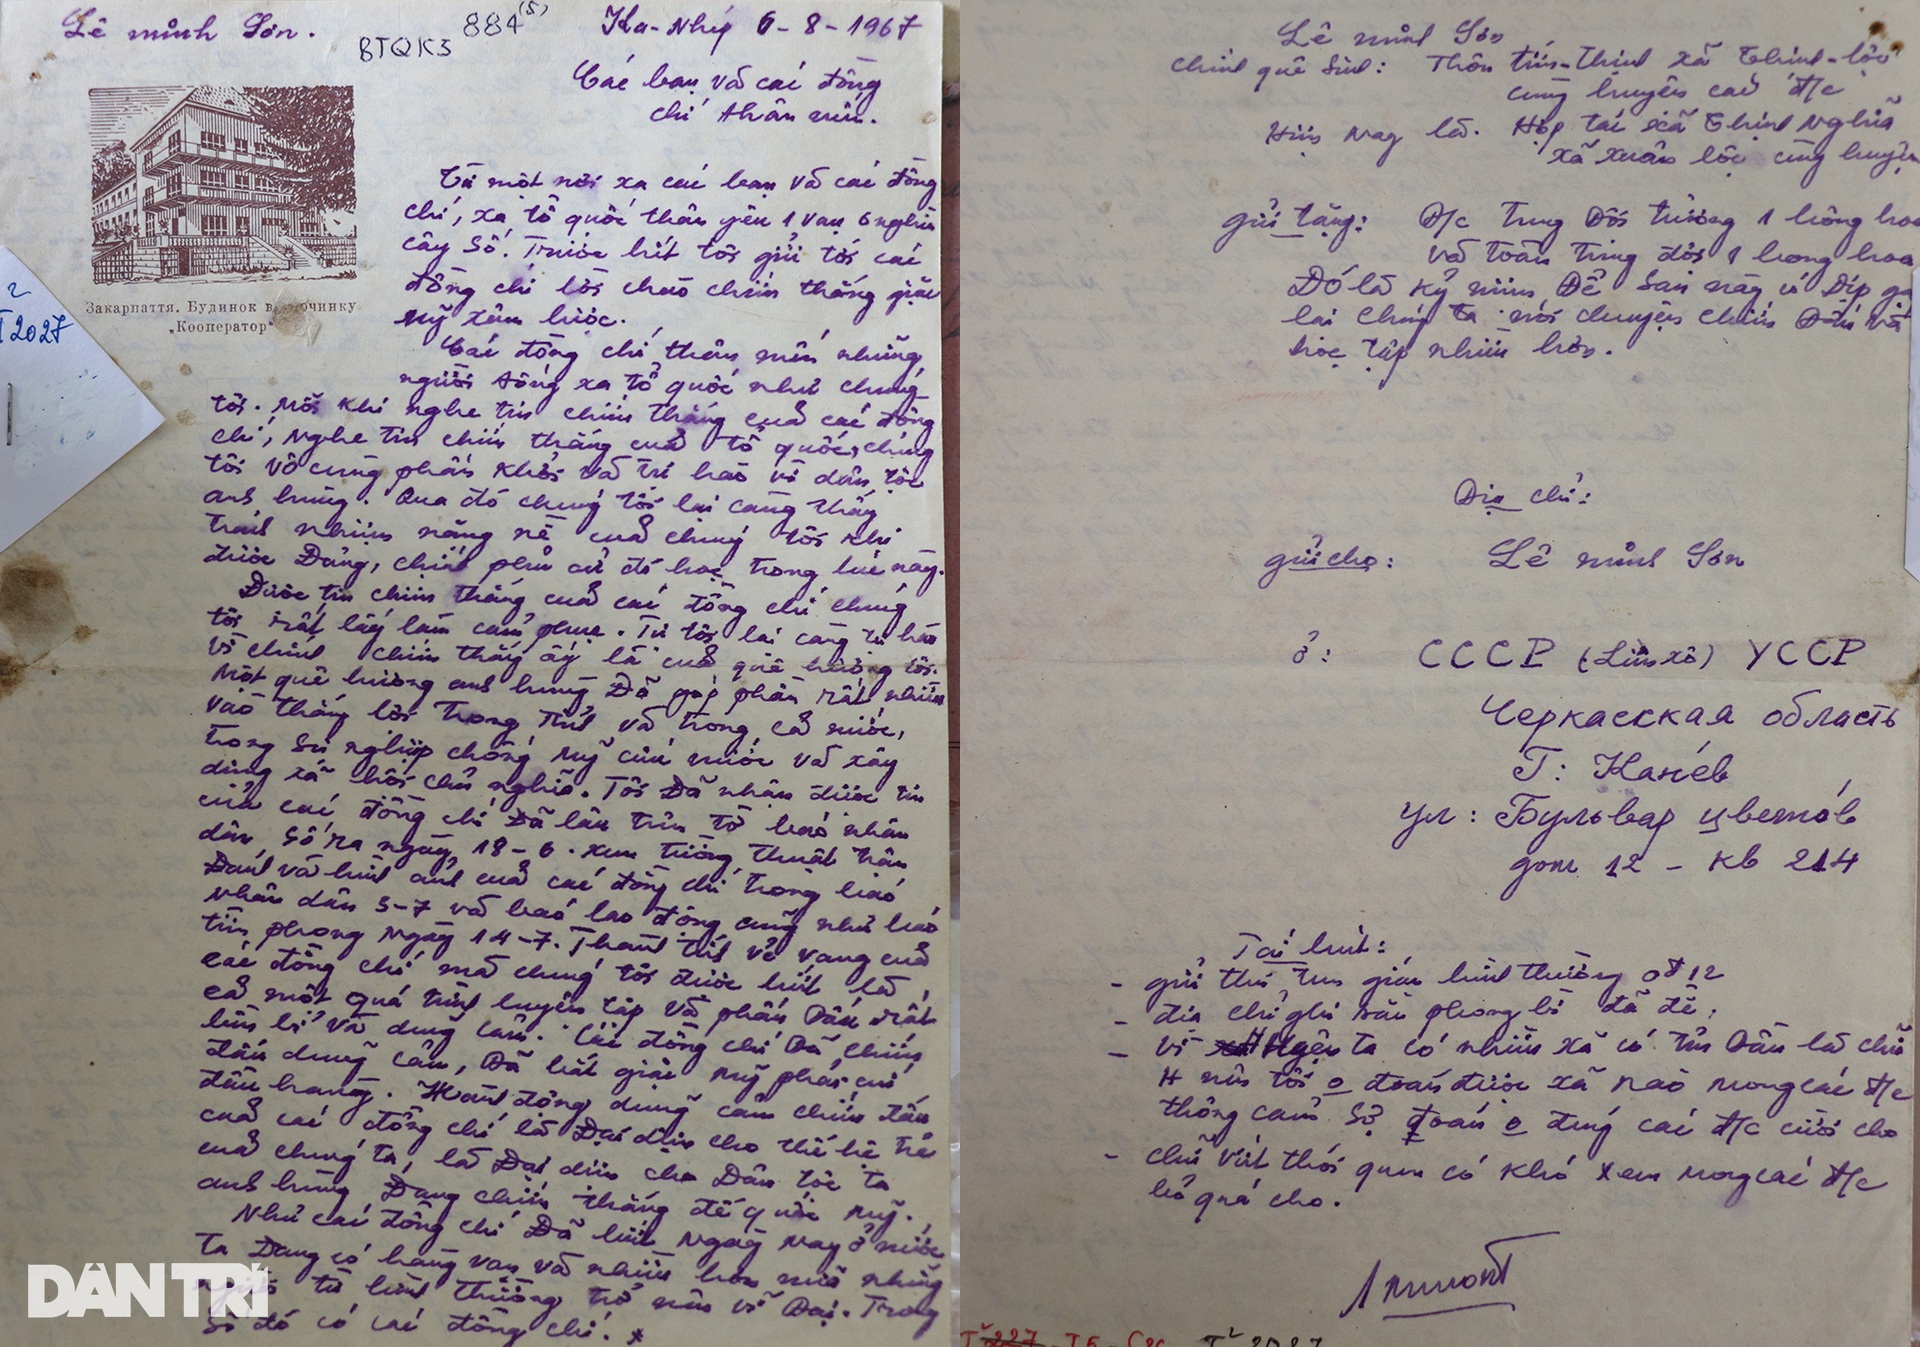 Lê minh Sơn.
884 (5)
BTQK3
Ka-Nhép 6-8-1967
Các bạn và các đồng
chí thân mến.
Закарпаття. Будинок відпочинку
"Кооператор"
T2027
Từ một nơi xa các bạn và các đồng
chí, xa tổ quốc thân yêu 1 vạn 6 nghìn
cây số. Trước hết tôi gửi tới các
đồng chí lời chào chiến thắng giặc
Mỹ xâm lược.
Các đồng chí thân mến những
người sống xa tổ quốc như chúng
tôi. Mỗi khi nghe tin chiến thắng của các đồng
chí, nghe tin chiến thắng của tổ quốc, chúng
tôi vô cùng phấn khởi và tự hào vì dân tộc
anh hùng. Qua đó chúng tôi lại càng thấy
trách nhiệm nặng nề của chúng tôi khi
được Đảng, chính phủ cử đi học trong lúc này.
Được tin chiến thắng của các đồng chí chúng
tôi rất lấy làm cảm phục. Tôi lại càng tự hào
vì chính chiến thắng ấy là của quê hương tôi.
Một quê hương anh hùng Đã góp phần rất nhiều
vào thắng lợi trong tỉnh và trong cả nước,
trong sự nghiệp chống Mỹ cứu nước và xây
dựng xã hội chủ nghĩa. Tôi Đã nhận được tin
của các đồng chí Đã lâu trên tờ báo nhân
dân số ra ngày 18-6. Xem tường thuật trận
Đánh và hình ảnh của các đồng chí trong báo
Nhân dân 5-7 và báo lao động cũng như báo
tiền phong ngày 14-7. Thành tích vẻ vang của
các đồng chí mà chúng tôi được biết là
cả một quá trình luyện tập và phấn Đấu rất
bền bỉ và dũng cảm. Các đồng chí Đã chiến
đấu dũng cảm, Đã bắt giặc Mỹ phải cúi
đầu hàng. Hành động dũng cảm chiến đấu
của các đồng chí là Đại diện cho thế hệ trẻ
của chúng ta, là Đại diện cho Dân tộc ta
anh hùng Đang chiến thắng đế quốc Mỹ.
Như các đồng chí Đã biết Ngày nay ở nước
ta Đang có hàng vạn và nhiều hơn nữa những
người từ bình thường trở nên vĩ Đại. Trong
số đó có các đồng chí.
DÂN TRÍ
Lê minh Sơn
Chính quê Sinh: Thôn tiến-Thịnh xã Thịnh-lộc
cùng huyện các đ/c
Hiện nay là. Hợp tác xã Thịnh Nghĩa
xã xuân lộc cùng huyện
gửi tặng: Đ/c Trung Đội trưởng 1 bông hoa
và toàn trung đội 1 bông hoa
Đó là kỷ niệm Để Sau này có Dịp gặp
lại chúng ta nói chuyện chiến Đấu và
học tập nhiều hơn.
Địa chỉ:
gửi cho: Lê minh Sơn
ở: CCCP (Liên xô) YCCP
Черкасская область
Г: Канев
ул: Бульвар цветов
дом 12 - кв 214
Tái bút:
- gửi thư tem giá bình thường 0đ12
- địa chỉ ghi trên phong bì đã đề,
- Vì Huyện ta có nhiều xã có tên Đầu là chữ
H nên tôi o đoán được xã nào mong các đ/c
thông cảm sợ đoán o đúng các đ/c cười cho
- chữ viết thói quen có khó xem mong các đ/c
bỏ quá cho.
T² 2027